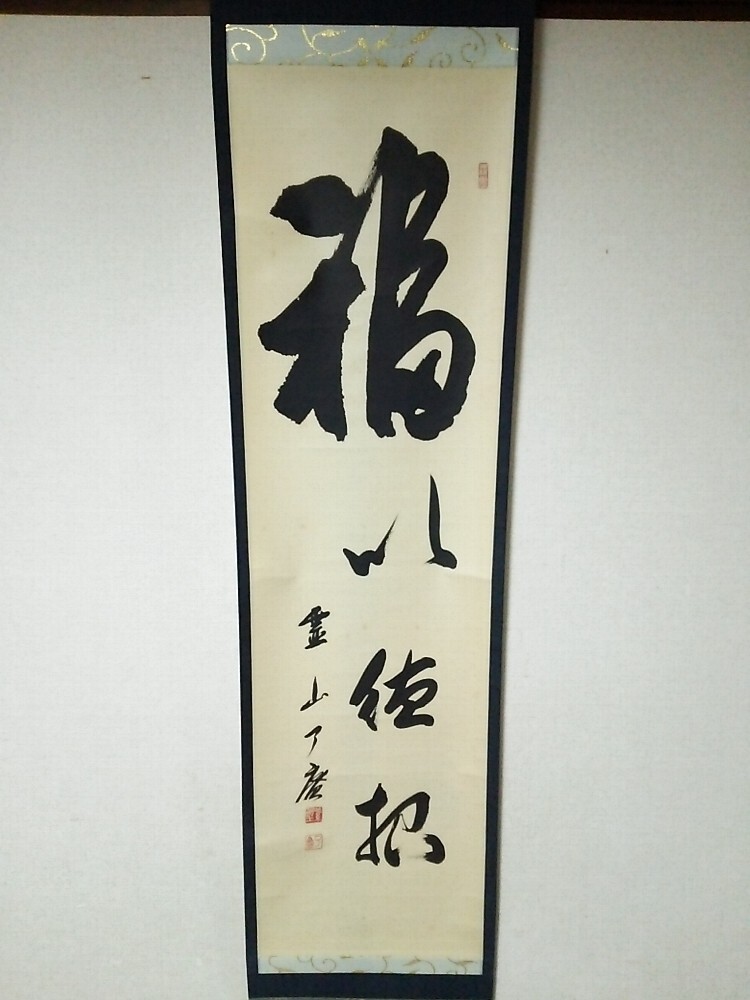 福以徳招
霊山了